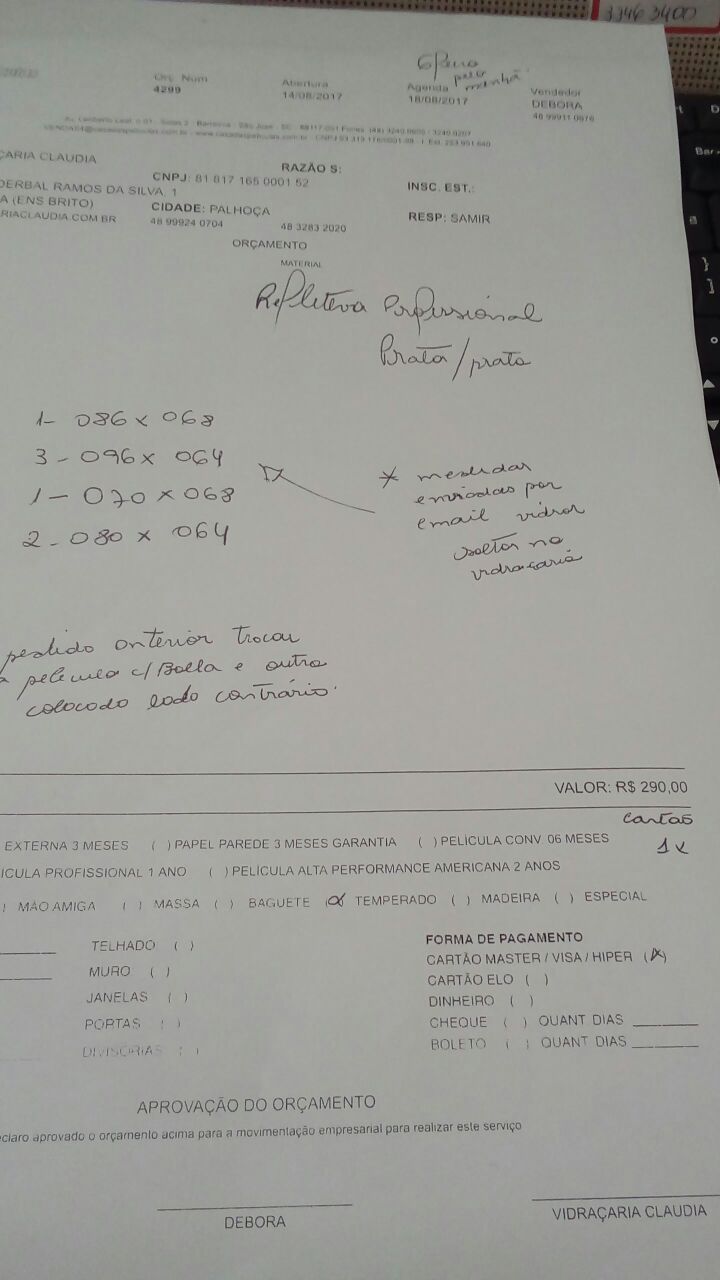 3346 3400
Orç. Num
4299
Abertura
14/08/2017
pela manhã
Agenda
18/08/2017
Vendedor
DEBORA
48 99911 0976
ÇARIA CLAUDIA
RAZÃO S:
CNPJ: 81 817 165 0001 52
INSC. EST.:
DERBAL RAMOS DA SILVA, 1
A (ENS BRITO)
CIDADE: PALHOÇA
RESP: SAMIR
RIACLAUDIA.COM BR
48 99924 0704
48 3283 2020
ORÇAMENTO
MATERIAL
Refletiva Profissional
Prata/prata
1- 086 x 068
3 - 096 x 064
1 - 070 x 068
2 - 080 x 064
* medidas
enviadas por
email vidros
soltos na
vidraçaria
pedido anterior trocar
a pelicula c/ Bolla e outra
colocado lado contrário.
VALOR: R$ 290,00
cartão
1x
EXTERNA 3 MESES ( ) PAPEL PAREDE 3 MESES GARANTIA ( ) PELÍCULA CONV 06 MESES
ICULA PROFISSIONAL 1 ANO ( ) PELÍCULA ALTA PERFORMANCE AMERICANA 2 ANOS
) MÃO AMIGA ( ) MASSA ( ) BAGUETE (x) TEMPERADO ( ) MADEIRA ( ) ESPECIAL
TELHADO ( )
MURO ( )
JANELAS ( )
PORTAS ( )
DIVISÓRIAS ( )
FORMA DE PAGAMENTO
CARTÃO MASTER / VISA / HIPER (x)
CARTÃO ELO ( )
DINHEIRO ( )
CHEQUE ( ) QUANT DIAS
BOLETO ( ) QUANT DIAS
APROVAÇÃO DO ORÇAMENTO
eclaro aprovado o orçamento acima para a movimentação empresarial para realizar este serviço
DEBORA
VIDRAÇARIA CLAUDIA